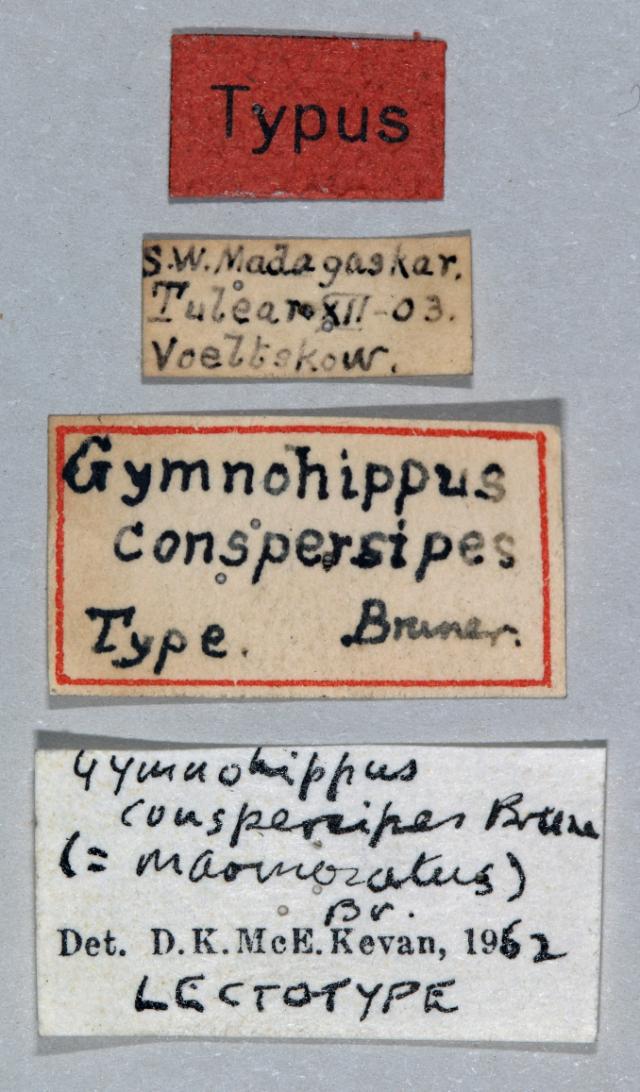 Typus
S.W. Madagaskar.
Tulear XII-03.
Voeltskow.
Gymnohippus
conspersipes
Type. Bruner.
Gymnohippus
conspersipes Brune
(= marmoratus)
Br.
Det. D.K. McE. Kevan, 1962
LECTOTYPE